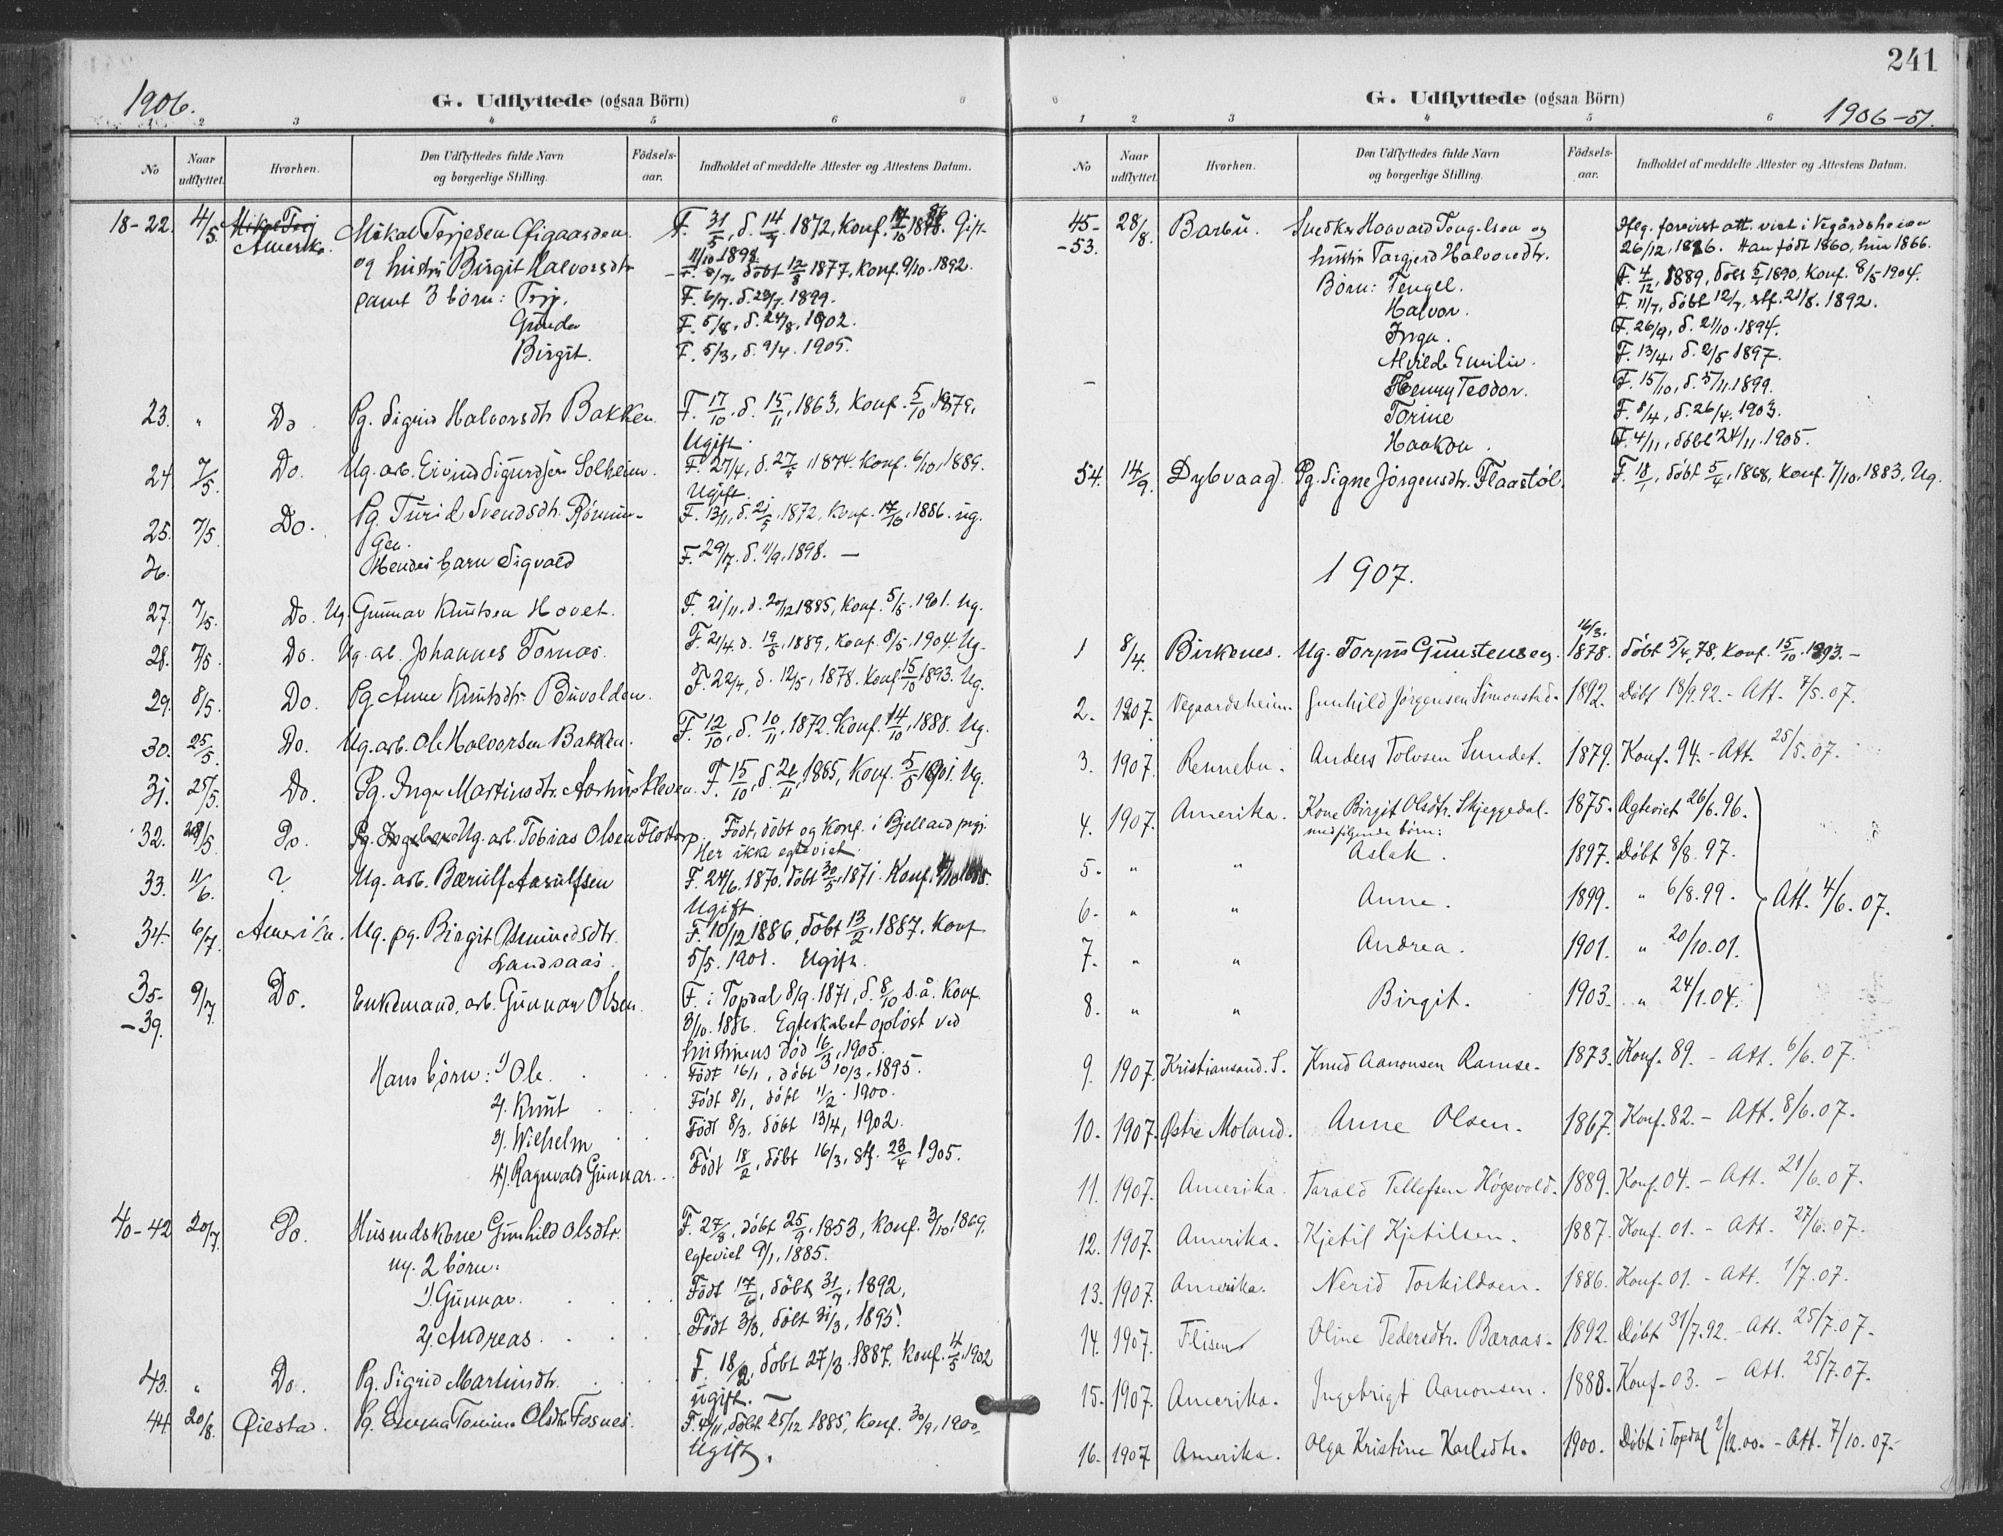 1906.
G. Udflyttede (ogsaa Börn)
1 2 3 4 5 6
No
Naar udflyttet.
Hvorhen.
Den Udflyttedes fulde Navn og borgerlige Stilling.
Födsels-aar.
Indholdet af meddelte Attester og Attestens Datum.
18-22. 4/5. Amerika. Mikal Terjesen Øigaarden F. 31/5, d. 14/7 1872, Konf. Gift
og hustru Birgit Halvorsdtr. 11/10 1898. døbt 12/8 1877, Konf. 9/10 1892.
samt 3 børn: Terje. F. 6/7, d. 23/7. 1899.
Gunder F. 5/8, d. 24/8, 1902.
Birgit. F. 5/3, d. 9/4. 1905.
23. " Do. Pg. Sigrid Halvorsdtr Bakken. F. 17/10. d. 15/11, 1863, Konf. 5/10, 1879.
Ugift.
24. 7/5. Do. Ug. arb. Eivind Sigurdsen Solheim. F. 27/4, d. 1874. Konf. 6/10, 1889.
Ugift.
25. 7/5. Do. Pg. Turid Svendsdtr. F. 13/11, d. 21/5, 1872, Konf. 17/10, 1886. ug.
26. Hendes barn Sigvald F. 29/7. d. 11/9. 1898. —
27. 7/5. Do. Ug. Gunnar Knutsen Hovet. F. 21/11, d. 20/12 1885, Konf. 5/5. 1901. Ug.
28. 7/5. Do. Ug. arb. Johannes Tornæs. F. 21/4. d. 19/5, 1889, Konf. 8/5. 1904. Ug.
29. 8/5. Do. Pg. Anne Knutsdtr. Buvolden. F. 22/4, d. 12/5, 1878. Konf. 15/10 1893. Ug.
30. 25/5. Do. Ug. arb. Ole Halvorsen Bakken. F. 12/10, d. 10/11, 1872. Konf. 14/10, 1888. Ug.
31. 25/5. Do. Pg. Inger Martinsdtr. F. 15/10, d. 1885, Konf. 5/5 1901. Ug.
32. 28/5. Do. Ug. arb. Tobias Olsen Flottorp. Født, døbt og Konf. i Bjelland prgj.
Her ikke egteviet.
33. 11/6. ? Ug. arb. Bærulf Aasulfsen F. 24/6. 1870. døbt 30/5, 1871. Konf.
Ugift
34. 6/7. Amerika. Ug. pg. Birgit Osmundsdtr. F. 10/12 1886, døbt 13/2, 1887. Konf.
Landsaas. 5/5. 1901. Ugift.
35- 9/7. Do. Enkemand, arb. Gunnar Olsen F. i Topdal 8/9. 1871, d. 8/10 s.å. Konf.
-39. 3/10. 1886. Egteskabet opløst ved
hustruens død 16/3, 1905.
Hans børn: 1) Ole. Født 16/1, døbt 10/3, 1895.
2). Knut Født 8/1, døbt 11/2. 1900.
3). Wilhelm Født 8/3. døbt 13/4, 1902.
4). Ragnvald Gunnar. Født 18/2, døbt 16/3, stf. 23/4 1905.
40-42 20/7. Do. Husmdskone Gunhild Olsdtr. F. 27/8, døbt 25/9, 1853, Konf. 3/10, 1869,
m. 2 børn: egteviet 9/1, 1885.
1). Gunnar. Født 17/6, døbt 31/7, 1892.
2). Andreas. Født 3/3, døbt 31/3, 1895.
43. " Do. Pg. Sigrid Martinsdtr. F. 18/2, døbt 27/3. 1887. Konf. 4/5. 1902
ugift. —
44. 20/8. Øiestad. Pg. Emma Tomine Olsdtr. Fosnes. F. 4/11, døbt 25/12 1885, Konf. 30/9, 1900.
Ugift.
241
G. Udflyttede (ogsaa Börn)
1906-07.
1 2 3 4 5 6
No
Naar udflyttet.
Hvorhen.
Den Udflyttedes fulde Navn og borgerlige Stilling.
Födsels-aar.
Indholdet af meddelte Attester og Attestens Datum.
45- 28/8. Barbu. Snedker Haavard Tengelsen og Flg. forevist att. viet i Vegårdsheien
-53. hustru Targjerd Halvorsdtr. 26/12, 1886. Han født 1860, hun 1866.
Børn: Tengel. F. 4/12, 1889, døbt 1890, Konf. 8/5 1904.
Halvor. F. 11/7, døbt 12/7, stf. 21/8. 1892.
Inga. F. 26/9, d. 21/10. 1894.
Alvilde Emilie. F. 13/4, d. 2/5 1897.
Henny Teodor. F. 15/10, d. 5/11. 1899.
Torine F. 8/4, d. 26/4. 1903.
Haakon. F. 4/11, døbt 24/11. 1905.
54. 14/9. Dybvaag. Pg. Signe Jørgensdtr. Flaastøl. F. 18/1, døbt 5/4, 1868, Konf. 7/10. 1883, Ug.
1907.
1 8/4. Birkenes. Ug. Torjus Gunstensen. 16/3. 1878. døbt 5/4, 78, Konf. 15/10. 1893. —
2. 1907. Vegaardsheien. Gunhild Jørgensen Simonstad. 1892. Døbt 18/9. 92. - Att. 7/5. 07.
3. 1907. Rennebu. Anders Tolvsen Sundet. 1879. Konf. 94. - Att. 25/5. 07.
4. 1907. Amerika. Kone Birgit Olsdtr. Skjeggedal. 1875. Ægteviet 26/6. 96.
medfølgende børn:
5. " " Aslak. 1897. Døbt 8/8. 97.
6. " " Anne. 1899. " 6/8. 99. Att. 4/6. 07.
7. " " Andrea. 1901. " 20/10. 01.
8. " " Birgit. 1903. " 24/1. 04.
9. 1907. Kristiansand. S. Knud Aanonsen Ramse. 1873. Konf. 89. - Att. 6/6. 07.
10. 1907. Østre Moland. Anne Olsen. 1867. Konf. 82. - Att. 8/6. 07.
11. 1907. Amerika. Tarald Tellefsen Høgevold. 1889. Konf. 04. - Att. 21/6. 07.
12. 1907. Amerika. Kjetil Kjetilsen. 1887. Konf. 01. - Att. 27/6. 07.
13. 1907. Amerika. Nerid Torkildsen. 1886. Konf. 01. - Att. 1/7. 07.
14. 1907. Flisen Oline Pedersdtr. Baraas. 1892. Døbt 31/7. 92. - Att. 25/7. 07.
15. 1907. Amerika. Ingebrigt Aanonsen. 1888. Konf. 03. - Att. 25/7. 07.
16. 1907 Amerika. Olga Kristine Karlsdtr. 1900. Døbt i Topdal 2/12. 00. - Att. 7/10. 07.